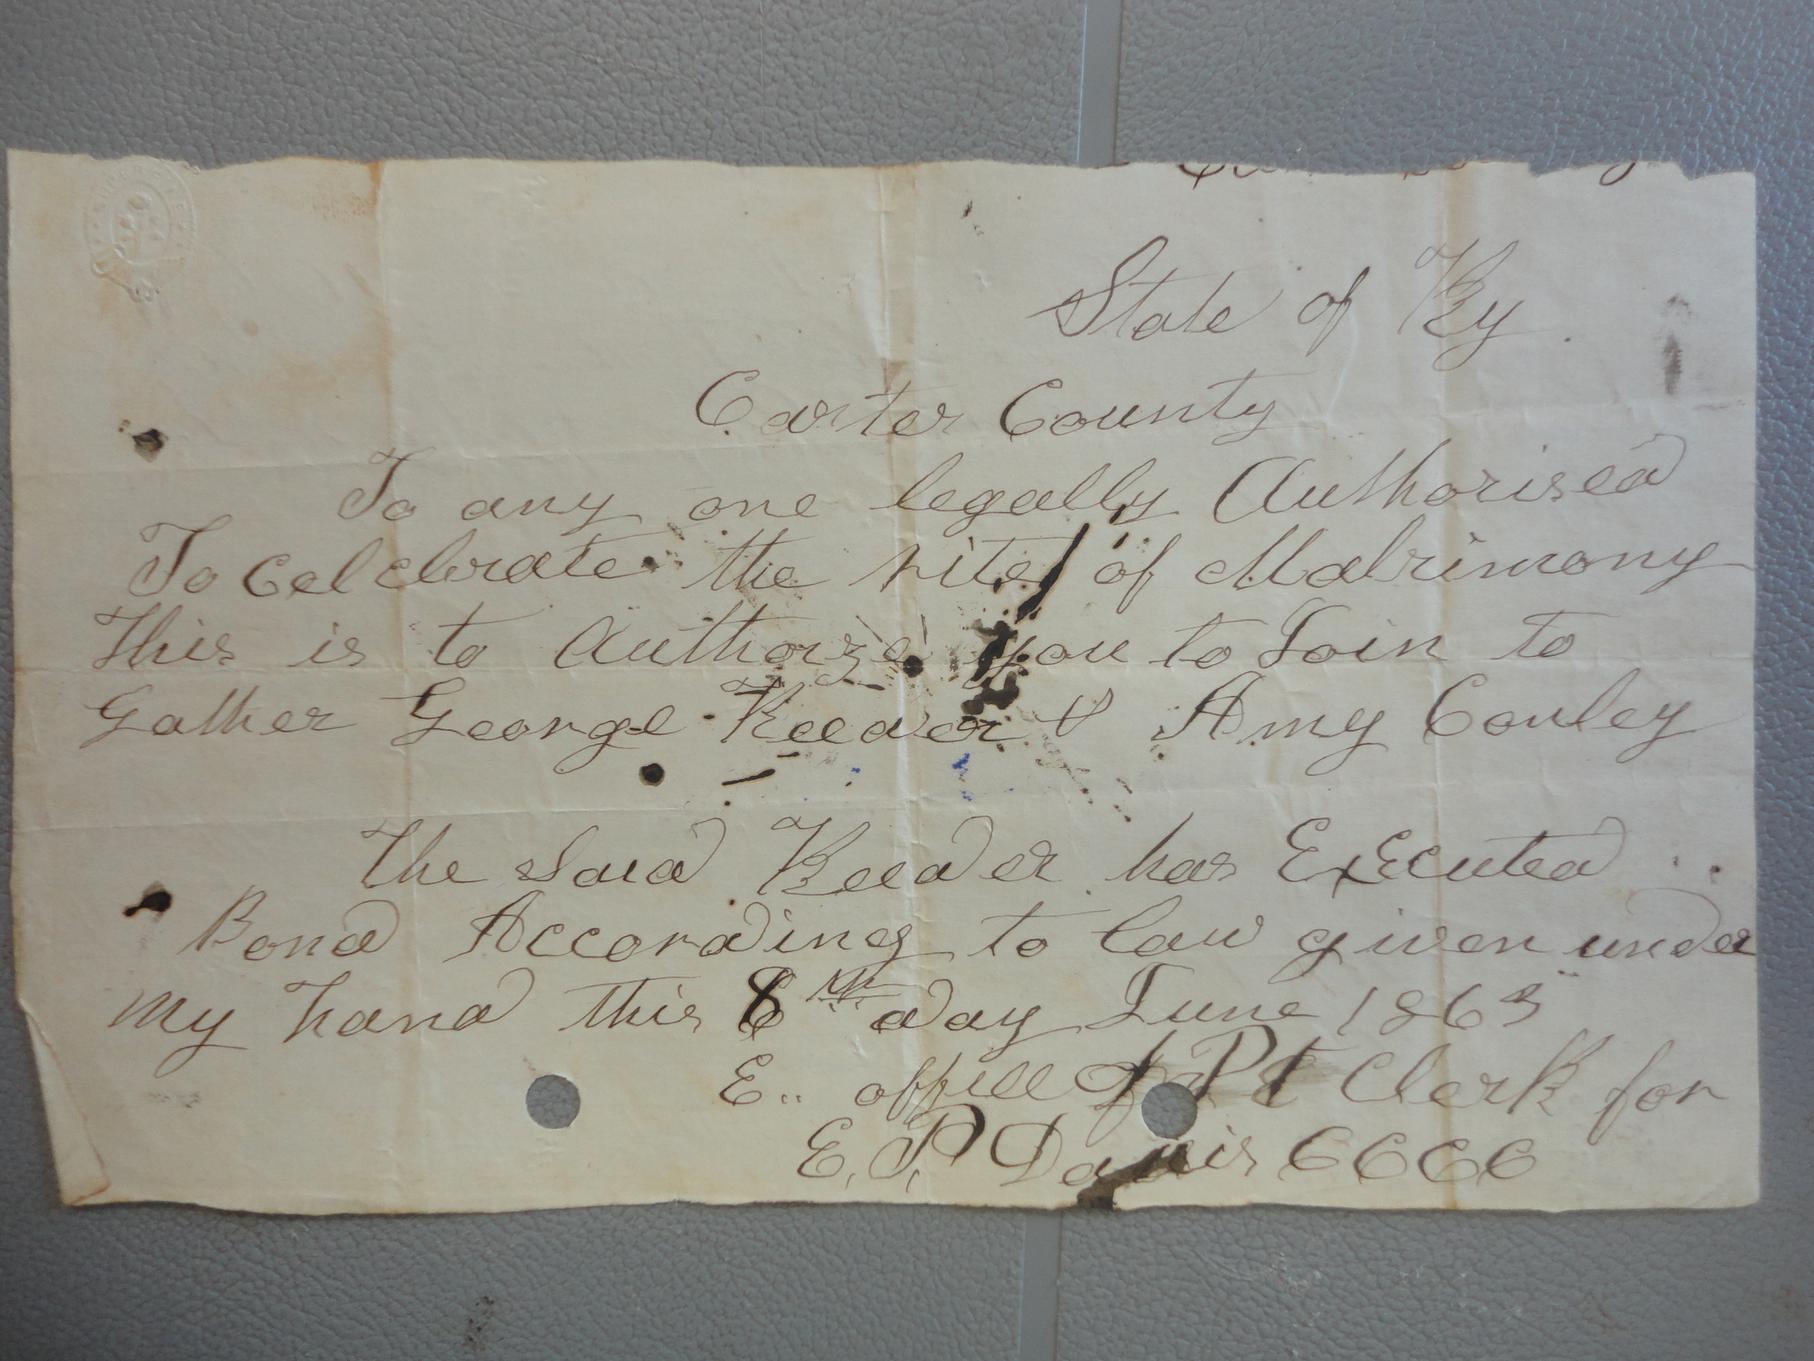 State of Ky
Carter County
To any one legally Authorised
To celebrate the rite of Matrimony
This is to Authorze you to Join to
Gather George Keeder & Amy Conley
The Said Keeder has Executed
Bond According to law given under
my hand this 8th day June 1865
E.. offill Clerk for
E, P, Davis CCCC